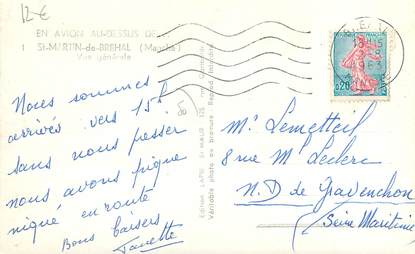 12€
EN AVION AU-DESSUS DE...
1 St-MARTIN-de-BREHAL (Manche)
Vue générale
Nous sommes
arrivés vers 15h
sans nous presser
nous avons pique
niqué en route
Bons baisers
Janette
Edition LAPIE St MAUR
Véritable photo au bromure
0,20
1963
Mr Lemetteil
8 rue Ml Leclerc
N.D de Gravenchon
(Seine Maritime